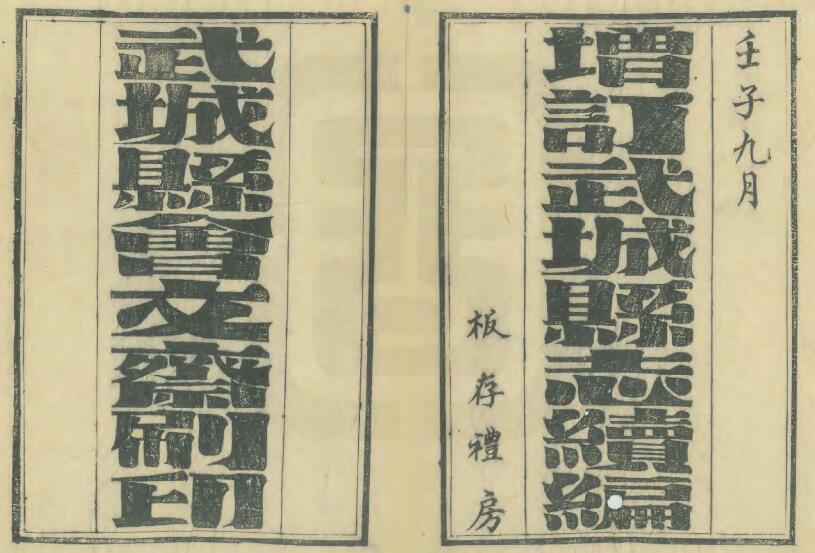 壬子九月
增訂武城縣志續編
板存禮房
武城縣會文齋刷印